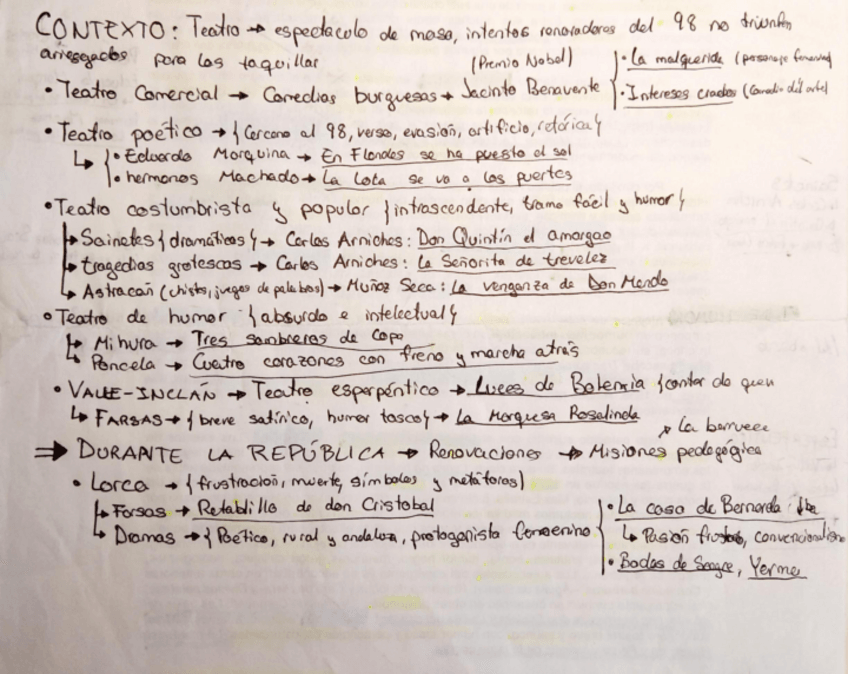 CONTEXTO: Teatro → espectaculo de masa, intentos renovadores del 98 no triunfan
arriesgados para las taquillas
• Teatro Comercial → Comedias burguesas → Jacinto Benavente (Premio Nobel) { • La malquerida (personaje femenino)
• Intereses creados (Comedia del arte)
• Teatro poético → {Cercano al 98, verso, evasión, artificio, retórica}
↳ { • Eduardo Marquina → En Flandes se ha puesto el sol
• hermanos Machado → La Lola se va a los puertos
• Teatro costumbrista y popular {intrascendente, trama fácil y humor}
→ Sainetes {dramáticas} → Carlos Arniches: Don Quintín el amargao
→ tragedias grotescas → Carlos Arniches: La Señorita de trevelez
→ Astracan (chistes, juegos de palabras) → Muñoz Seca: La venganza de Don Mendo
• Teatro de humor {absurdo e intelectual}
→ Mihura → Tres sombreros de Copa
→ Poncela → Cuatro corazones con freno y marcha atrás
• VALLE-INCLÁN → Teatro esperpéntico → Luces de Bohemia
↳ FARSAS → {breve satírico, humor tosco} → La Marquesa Rosalinda
⇒ DURANTE LA REPÚBLICA → Renovaciones → Misiones pedagógica
→ La barraca
• Lorca → {frustración, muerte, símbolos y metáforas}
→ Farsas → Retablillo de don Cristobal
→ Dramas → {Poético, rural y andaluza, protagonista femenino { • La casa de Bernarda Alba
↳ Pasión frustrada, convencionalismo
• Bodas de Sangre, Yerma